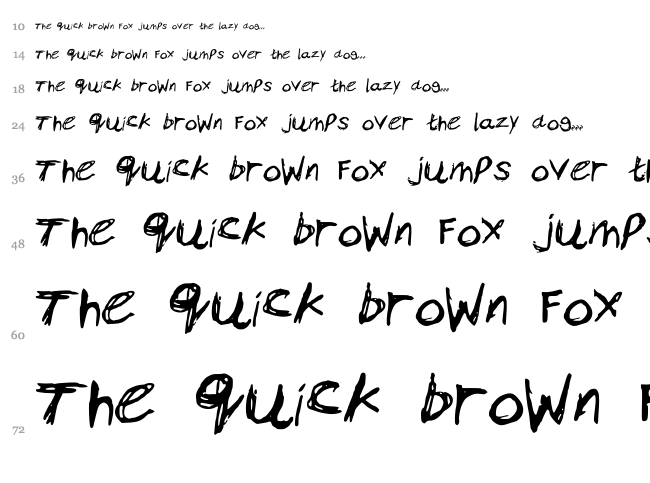 10 The quick brown Fox jumps over the lazy dog...
14 The quick brown Fox jumps over the lazy dog...
18 The quick brown Fox jumps over the lazy dog...
24 The quick brown Fox jumps over the lazy dog...
36 The quick brown Fox jumps over t
48 The quick brown Fox jump
60 The quick brown Fox
72 The quick brown